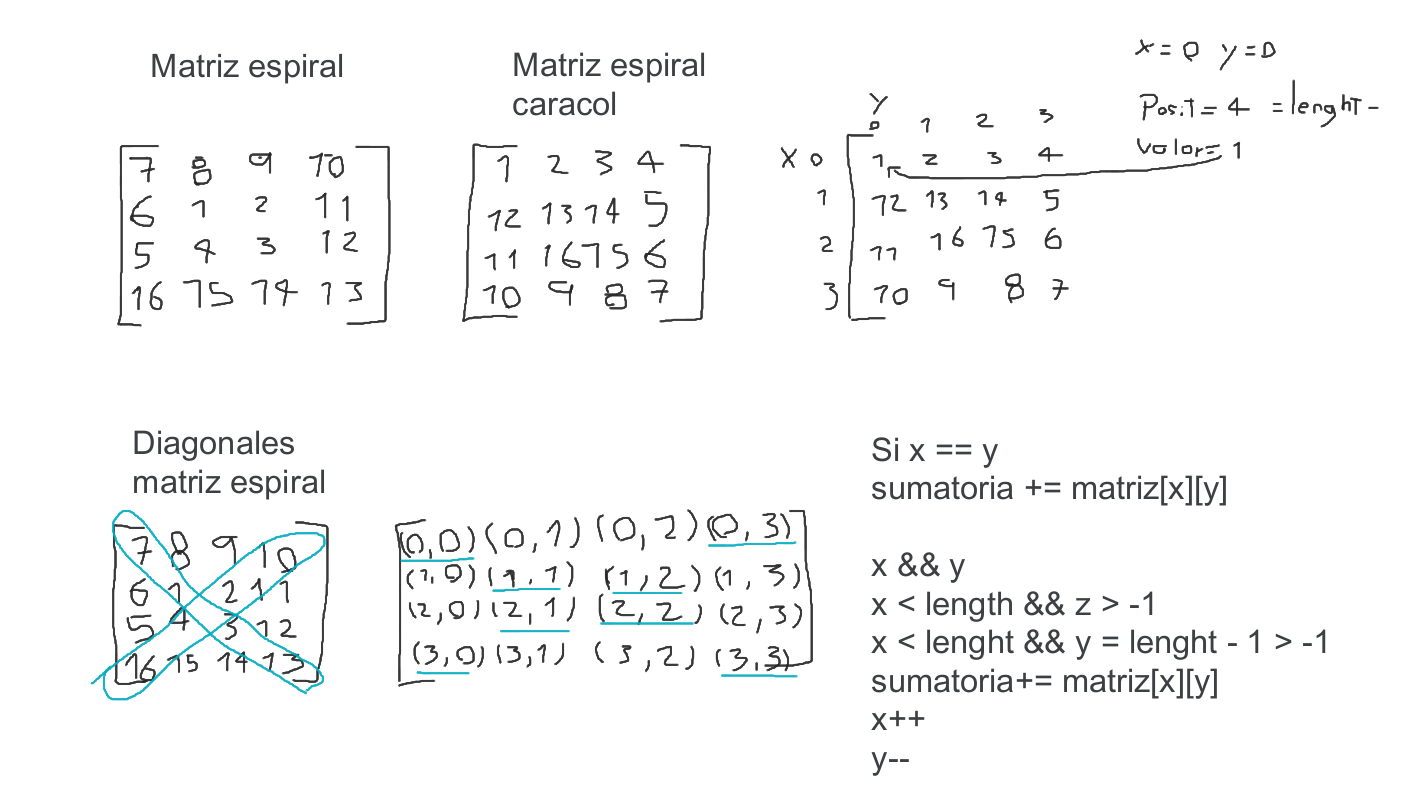 Matriz espiral
7 8 9 10
6 1 2 11
5 4 3 12
16 15 14 13
Matriz espiral
caracol
1 2 3 4
12 13 14 5
11 16 15 6
10 9 8 7
x = 0 y = 0
Posit = 4 = lenght -
valor = 1
Y
0 1 2 3
X 0 1 2 3 4
1 12 13 14 5
2 11 16 15 6
3 10 9 8 7
Diagonales
matriz espiral
7 8 9 10
6 1 2 11
5 4 3 12
16 15 14 13
(0,0) (0,1) (0,2) (0,3)
(1,0) (1,1) (1,2) (1,3)
(2,0) (2,1) (2,2) (2,3)
(3,0) (3,1) (3,2) (3,3)
Si x == y
sumatoria += matriz[x][y]
x && y
x < length && z > -1
x < lenght && y = lenght - 1 > -1
sumatoria+= matriz[x][y]
x++
y--